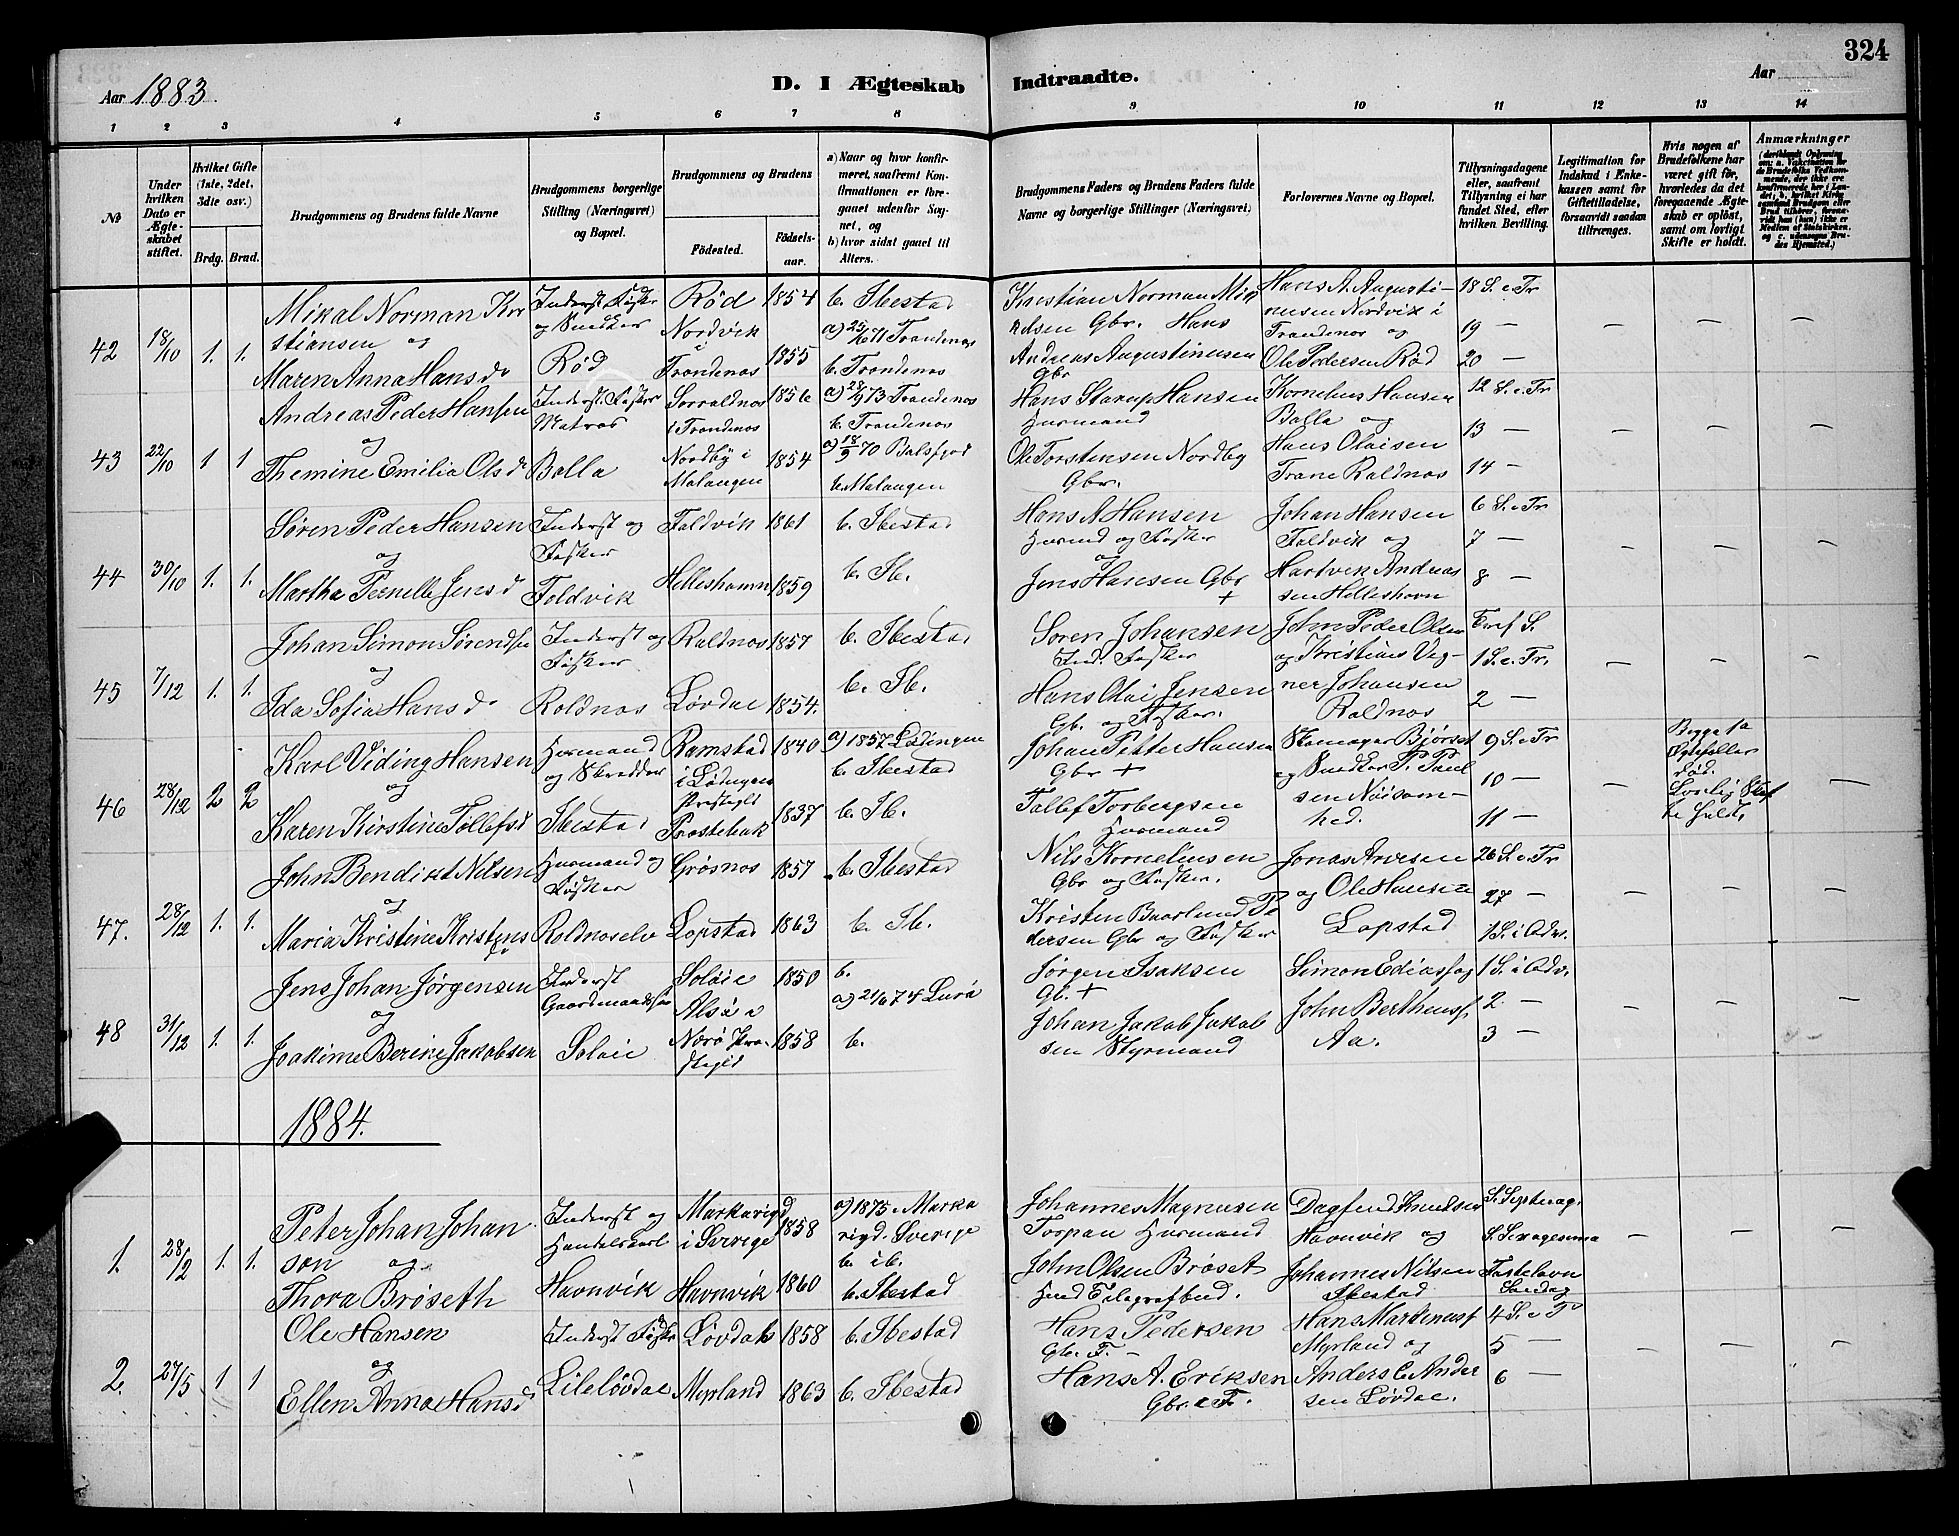 324
Aar 1883.
D. I Ægteskab Indtraadte.
Aar
1 2 3 4 5 6 7 8 9 10 11 12 13 14
No
Under hvilken Dato er Ægteskabet stiftet.
Hvilket Gifte (1ste, 2det, 3die osv.)
Brdg. Brud.
Brudgommens og Brudens fulde Navne
Brudgommens borgerlige Stilling (Næringsvei) og Bopæl.
Brudgommens og Brudens
Fødested.
Fødselsaar.
a) Naar og hvor konfirmeret, saafremt Konfirmationen er foregaaet udenfor Sognet, og
b) hvor sidst gaaet til Alters.
Brudgommens Faders og Brudens Faders fulde Navne og borgerlige Stillinger (Næringsvei)
Forlovernes Navne og Bopæl.
Tillysningsdagene eller, saafremt Tillysning ei har fundet Sted, efter hvilken Bevilling.
Legitimation for Indskud i Enkekassen samt for Giftetilladelse, forsaavidt saadan tiltrænges.
Hvis nogen af Brudefolkene har været gift før, hvorledes da det foregaaende Ægteskab er opløst, samt om lovligt Skifte er holdt.
Anmærkninger
42 18/10 1. 1.
Mikal Norman Kristiansen og
Maren Anna Hansd.
Inderst Fisker og Snedker
Rød
Rød 1854
Nordvik i Trondenæs 1855
b. Ibestad
a) 25/6 71 Trondenæs
b. Trondenæs
Kristian Norman Mikkelsen Gbr. Hans
Andreas Augustinusen Gbr
Hans A. Augustinusen Nordvik i
Trondenæs og
Ole Pedersen Rød
18 S. e. Tr
19 —
20 —
43 22/10 1 1
Andreas Peder Hansen
og
Themine Emilia Olsd.
Inderst Fisker
Matros
Bolla
Sørroldnæs 1856
i Trondenæs
Nordby i 1854
Malangen
a) 28/9 73 Trondenæs
b. Trondenæs
a) 18/9 70 Balsfjord
b. Malangen
Hans Starup Hansen
Husmand
Ole Torstensen Nordby
Gbr.
Kornelius Hansen
Bolla og
Hans Olaisen
Trane Roldnæs
12 S. e. Tr
13 —
14 —
44 30/10 1. 1.
Søren Peder Hansen
og
Martha Pernelle Jensd
Inderst og
Fisker
Foldvik
Foldvik 1861
Helleshamn 1859
b. Ibestad
b. Ib.
Hans A Hansen
Husmd og Fisker
Jens Hansen Gbr
+
Johan Hansen
Foldvik og
Hartvik Andreassen Helleshavn
6 S. e. Tr
7 —
8 —
45 7/12 1. 1.
Johan Simon Sørensen
og
Ida Sofia Hansd.
Inderst og
Fisker
Roldnæs
Roldnæs 1857
Løvdal 1854.
b. Ibestad
b. Ib.
Søren Johansen
Ind. Fisker
Hans Olai Jensen
Gb. og Fisker.
John Peder Olsen
og Kristian Vegner Johansen
Roldnæs
Tref S.
1 S. e. Tr.
2 —
46 28/12 2 2
Karl Viding Hansen
og
Karen Kirstine Tollefsd
Husmand
og Skredder
Ibestad
Ramstad 1840
i Lødingens
Prestegjeld
Prestebak 1837
a) 1857 Lødingen
b. Ibestad
b. Ib.
Johan Petter Hansen
Gbr +
Tollef Torbergsen
Husmand
Skomager Bjørset
og Snedker P. Paulsen Nøisomhed.
9 S. e. Tr
10 —
11 —
Begge fø
Ægtefæller
død.
Lovlig Skifte holdt.
47. 28/12 1. 1.
John Bendikt Nilsen
og
Maria Kristine Kristensd
Husmand og
Fisker
Roldnæselv
Grøsnæs 1857
Lopstad 1863
b. Ibestad
b. Ib.
Nils Korneliusen
Gbr og Fisker.
Kristen Baarlund Pedersen Gbr og Fisker
Jonas Arvesen
og Ole Hansen
Lopstad
26 S. e. Tr
27 —
1 S. i Adv.
48 31/12 1. 1.
Jens Johan Jørgensen
og
Joakime Berine Jakobsen
Inderst
Gaardmandssøn
Soløie
Soløie 1850
Alsøi i
Nærø Prestegjeld 1858
b.
a) 21/6 74 Lurø
b.
Jørgen Isaksen
Gb. +
Johan Jakob Jakobsen Styrmand
Simon Eliass og
John Bertheuss.
Aa.
1 S. i Adv.
2 —
3 —
1884.
1. 28/2 1. 1.
Peter Johan Johanson og
Thora Brøseth
Inderst og
Handelskarl
Havnvik
Markarigd
i Sverige 1858
Havnvik 1860
a) 1875 i Markarigd. Sverige
b. ib.
b. Ibestad
Johannes Magnusen
Torpan Husmand
John Olsen Brøset
Hmd Telegrafbud.
Dagfind Knudsen
Havnvik og
Johannes Nilsen
Ibestad
S. Septuag.
S. Sexagesima
Fastelavn
Søndag
2. 27/5 1 1
Ole Hansen
og
Ellen Anna Hansd
Inderst Fisker
Lileløvdal
Løvdal 1858
Myrland 1863
b. Ibestad
b. Ibestad
Hans Pedersen
Gbr. F. —
Hans A. Eriksen
Gbr. e F.
Hans Martinuss
Myrland og
Anders C. Andersen Løvdal.
4 S. e P
5 —
6 —